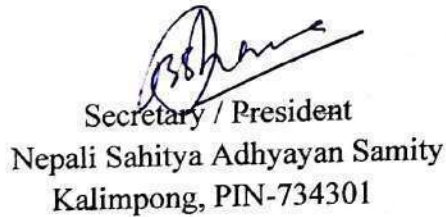 Secretary / President
Nepali Sahitya Adhyayan Samity
Kalimpong, PIN-734301